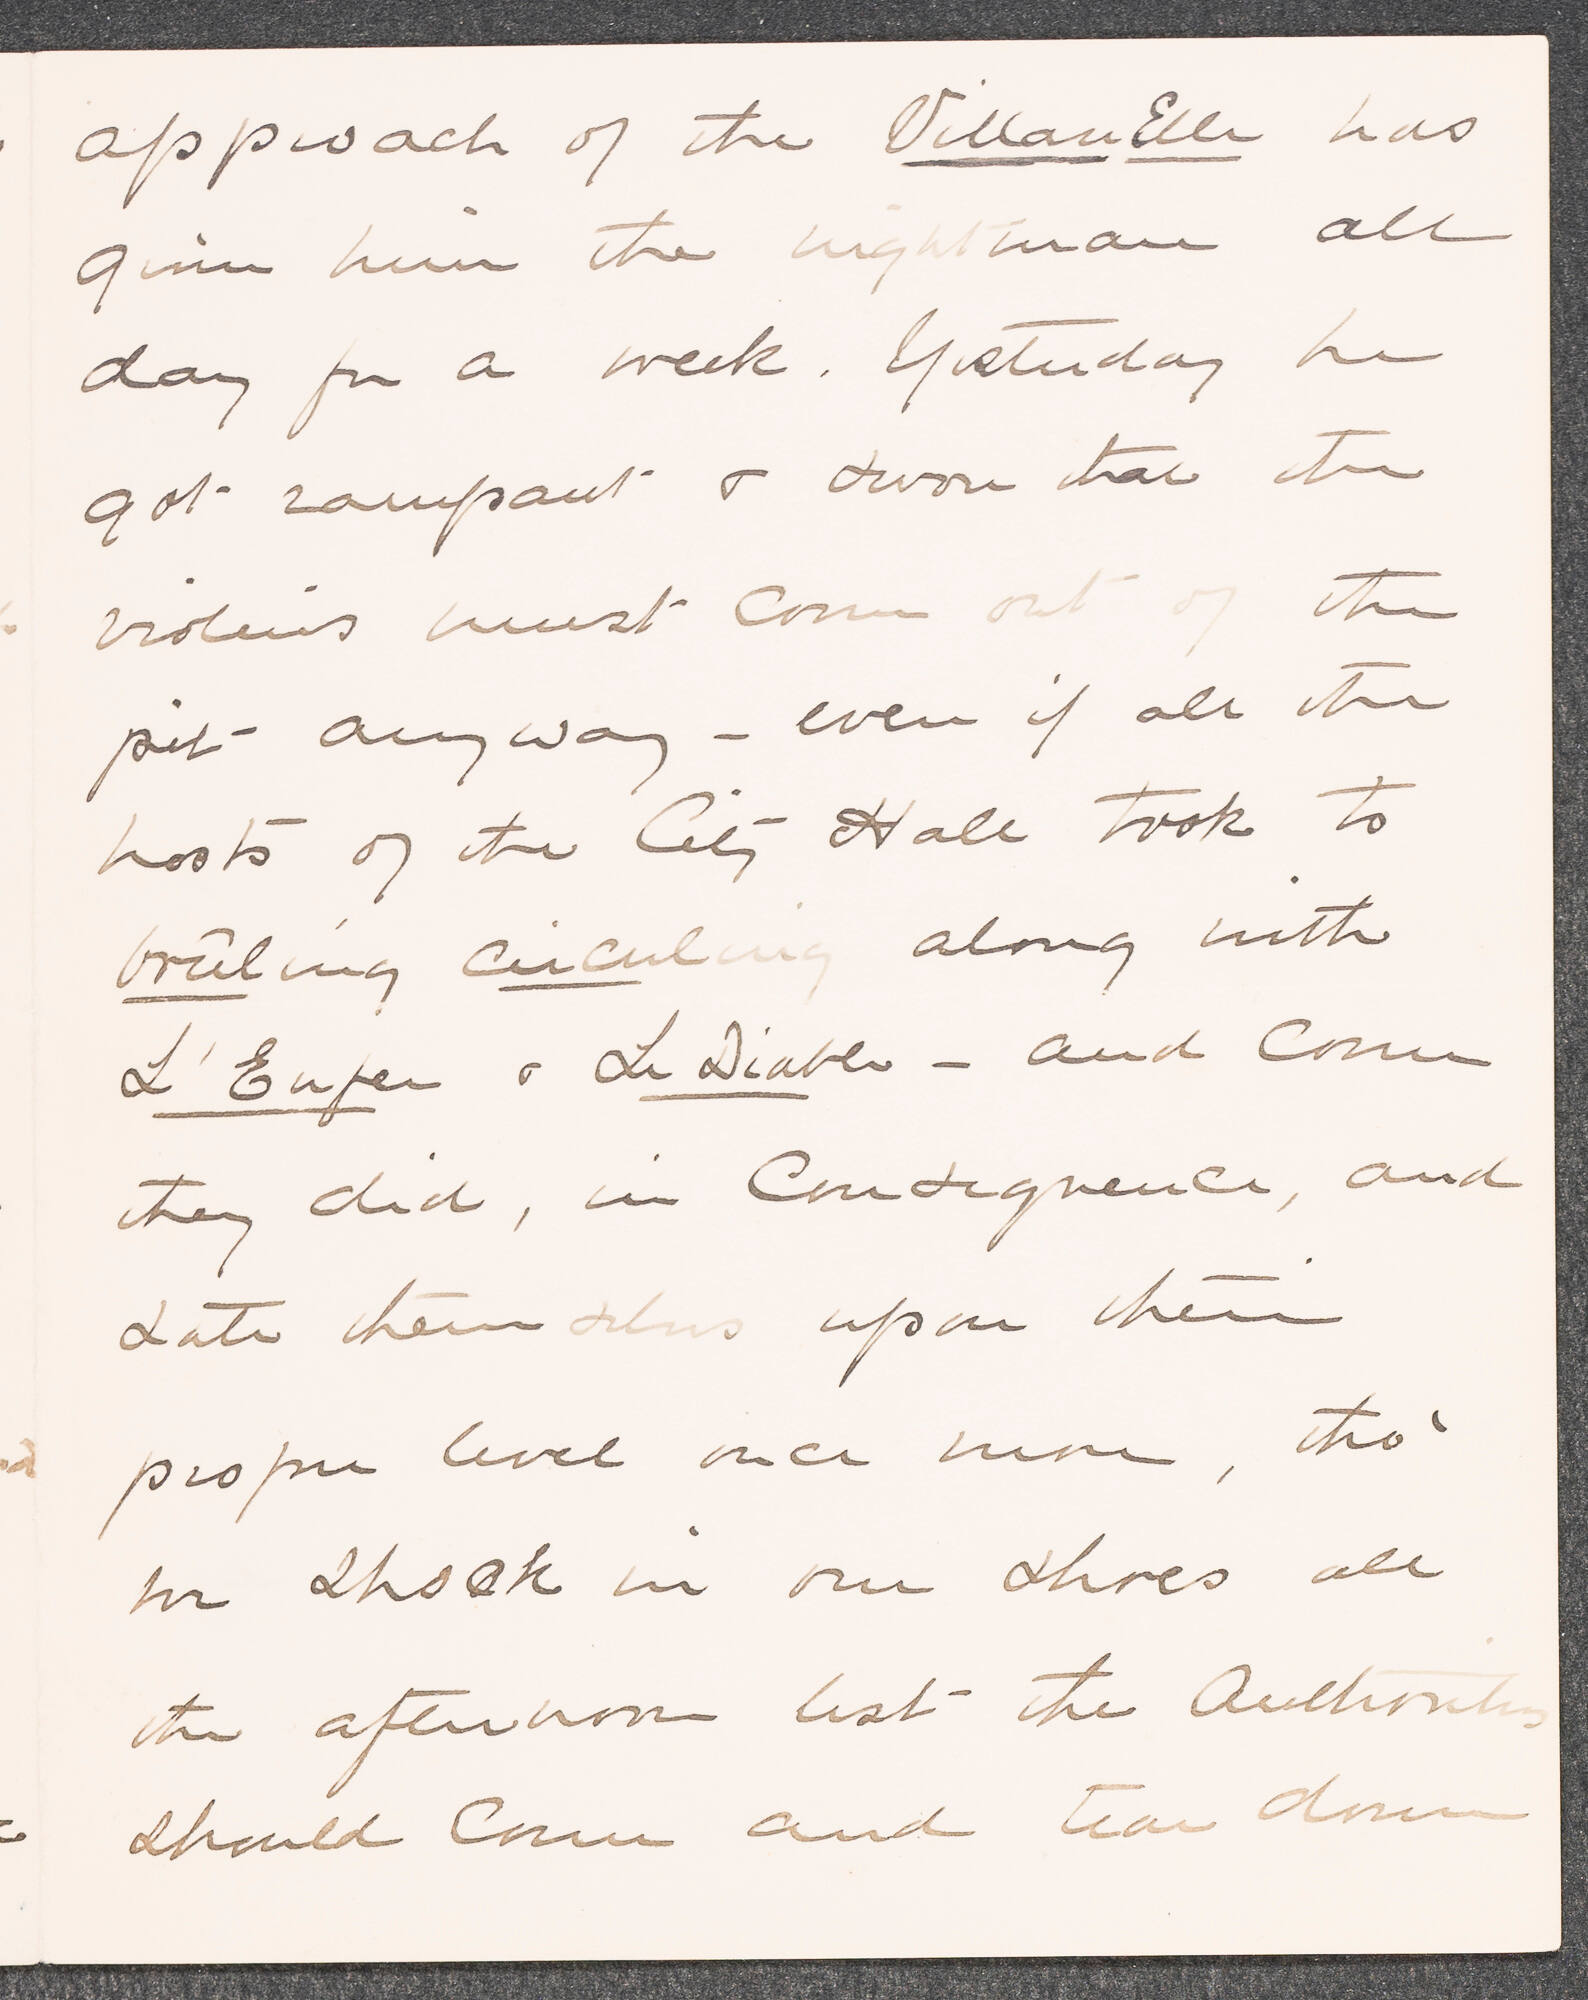 approach of the VillanElle has
given him the nightmare all
day for a week. Yesterday he
got rampant & swore that the
violins must come out of the
pit anyway – even if all the
hosts of the City Hall took to
brûling circuling along with
L'Enfer & Le Diable – and come
they did, in Consequence, and
sate themselves upon their
proper level once more, tho'
we shook in our shoes all
the afternoon lest the Authorities
should Come and tear down